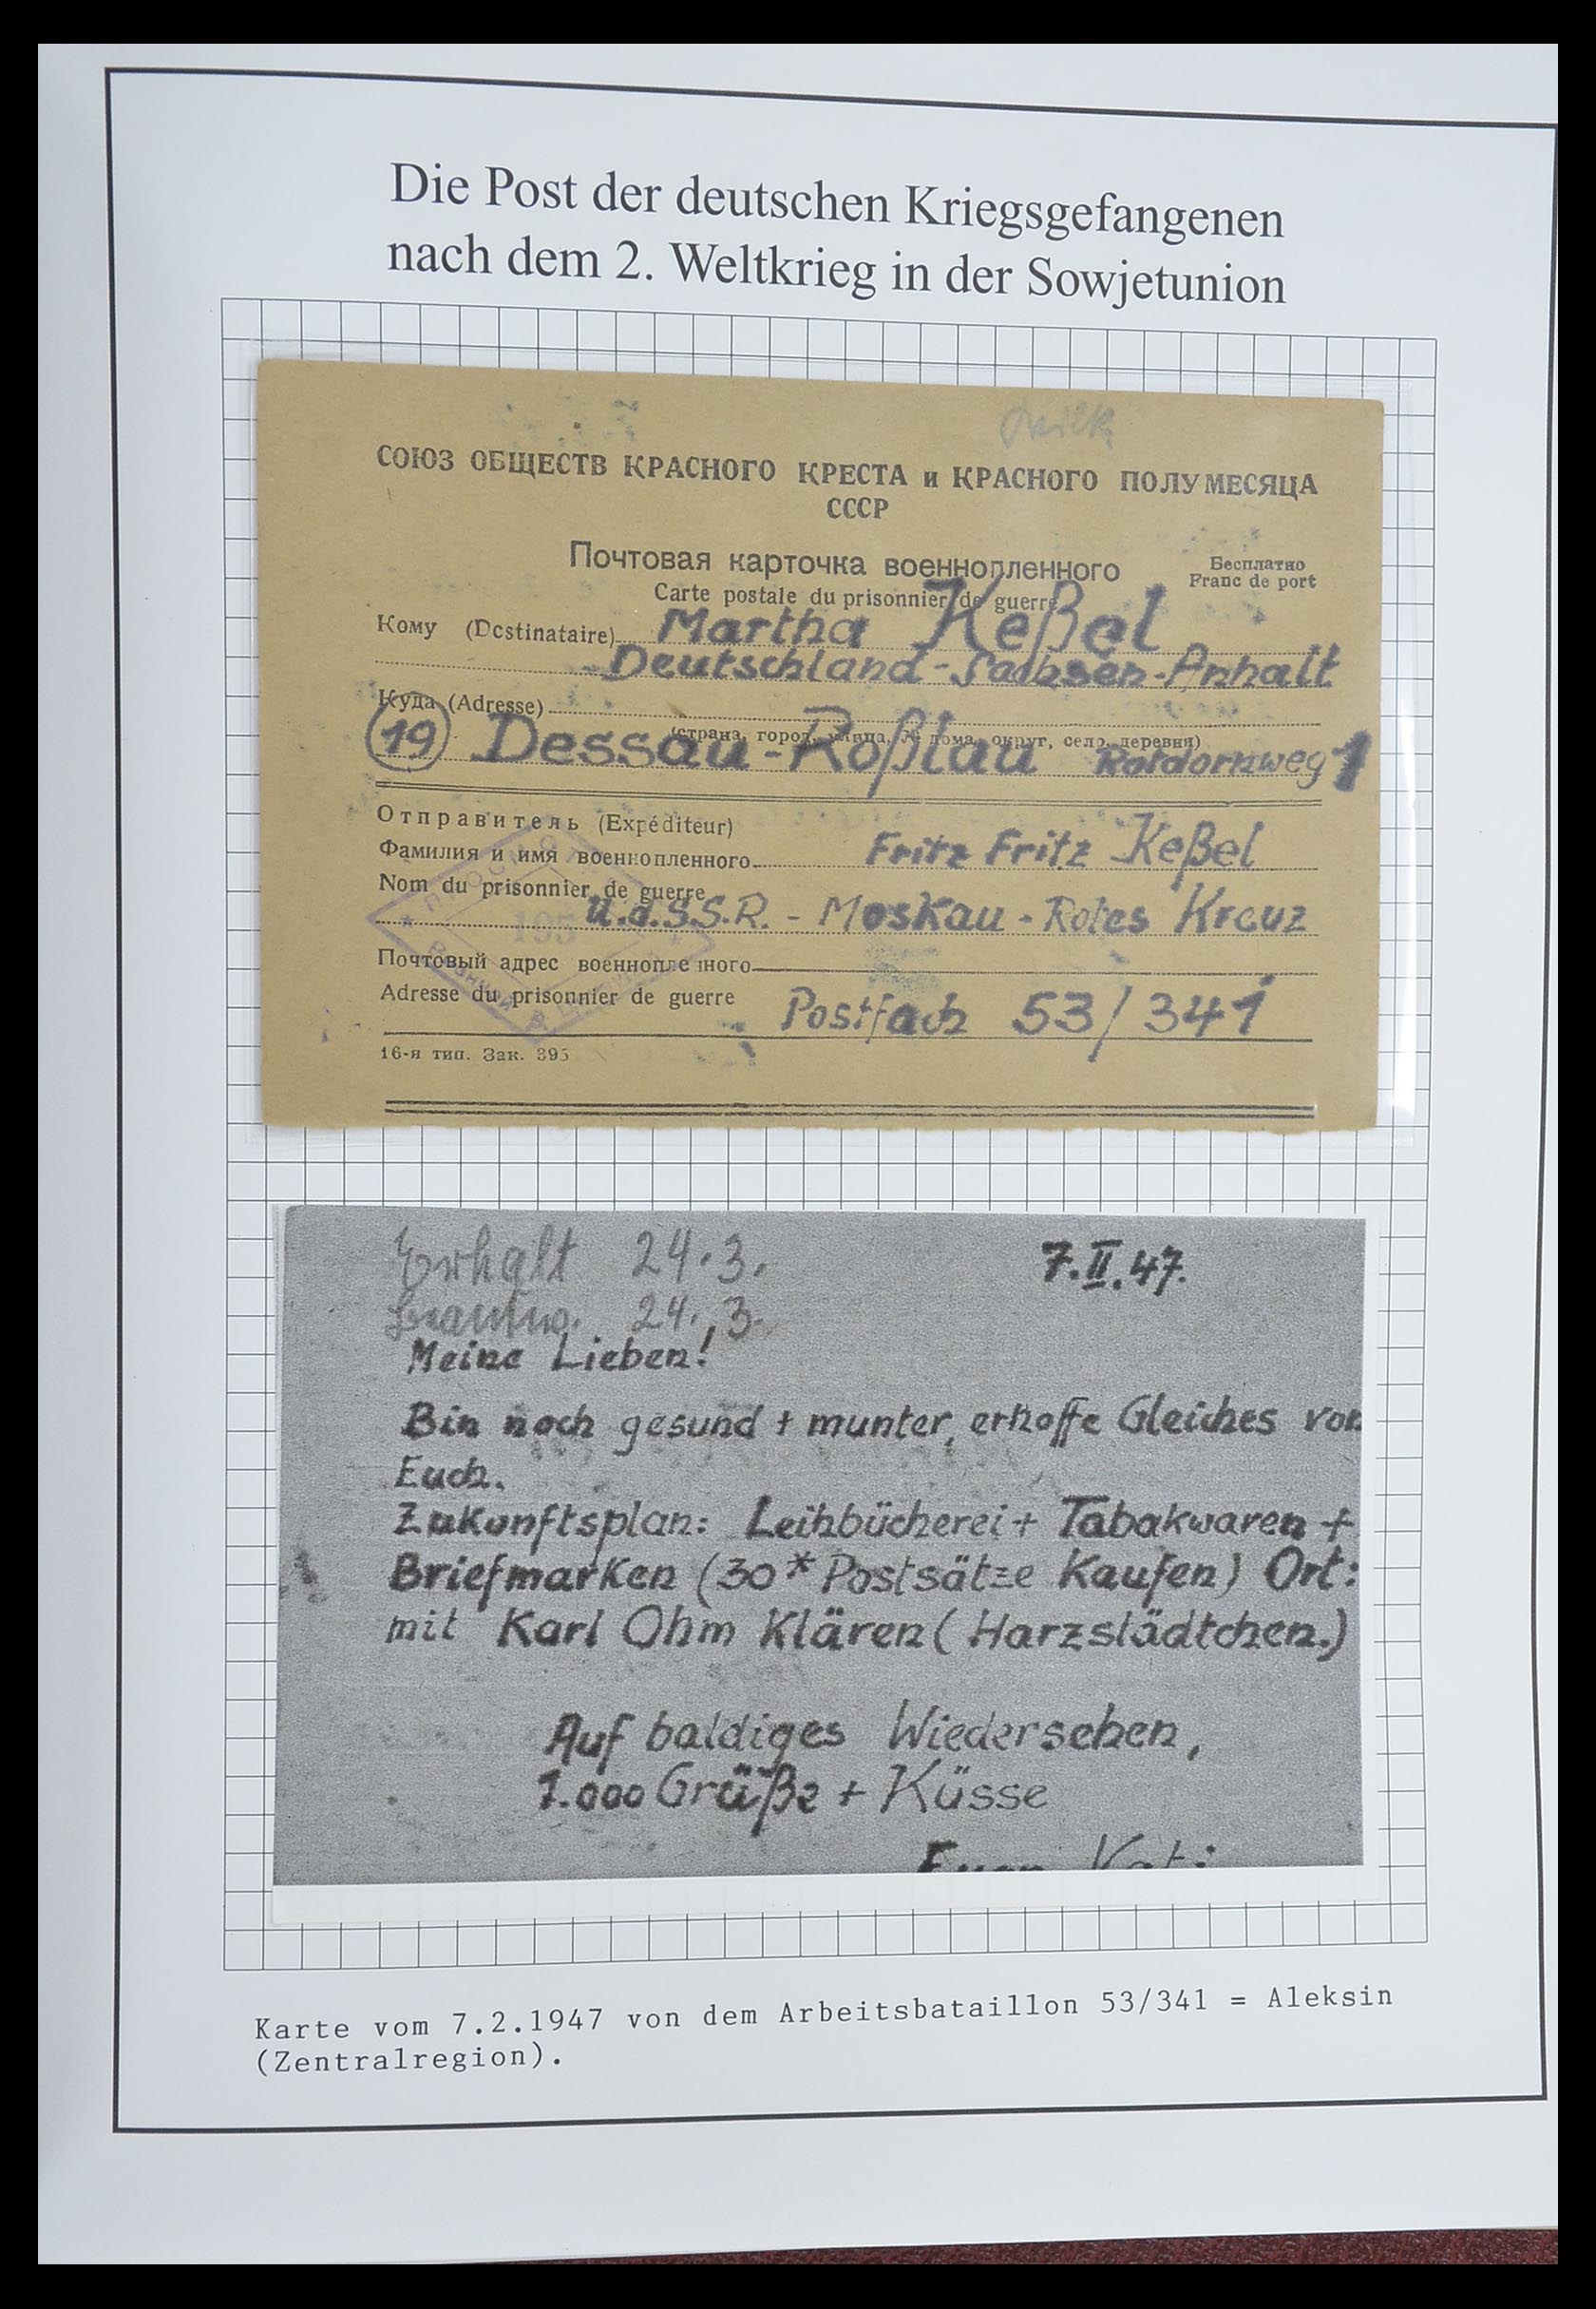 Die Post der deutschen Kriegsgefangenen
nach dem 2. Weltkrieg in der Sowjetunion
СОЮЗ ОБЩЕСТВ КРАСНОГО КРЕСТА и КРАСНОГО ПОЛУМЕСЯЦА
СССР
Почтовая карточка военнопленного
Бесплатно
Carte postale du prisonnier de guerre
Franc de port
Кому (Destinataire) Martha Keßel
Deutschland-Sachsen-Anhalt
Куда (Adresse)
(страна, город, улица, № дома, округ, село, деревня)
19 Dessau-Roßlau Rotdornweg 1
Отправитель (Expéditeur)
Фамилия и имя военнопленного Fritz Fritz Keßel
Nom du prisonnier de guerre
U.d.S.S.R. - Moskau - Rotes Kreuz
Почтовый адрес военнопленного
Adresse du prisonnier de guerre Postfach 53/341
16-я тип. Зак. 395
Erhalt 24.3.
7.II.47.
24.3.
Meine Lieben!
Bin noch gesund + munter, erhoffe Gleiches von
Euch.
Zukunftsplan: Leihbücherei + Tabakwaren +
Briefmarken (30* Postsätze Kaufen) Ort:
mit Karl Ohm Klären (Harzstädtchen.)
Auf baldiges Wiedersehen,
1.000 Grüße + Küsse
Euer Vati
Karte vom 7.2.1947 von dem Arbeitsbataillon 53/341 = Aleksin
(Zentralregion).